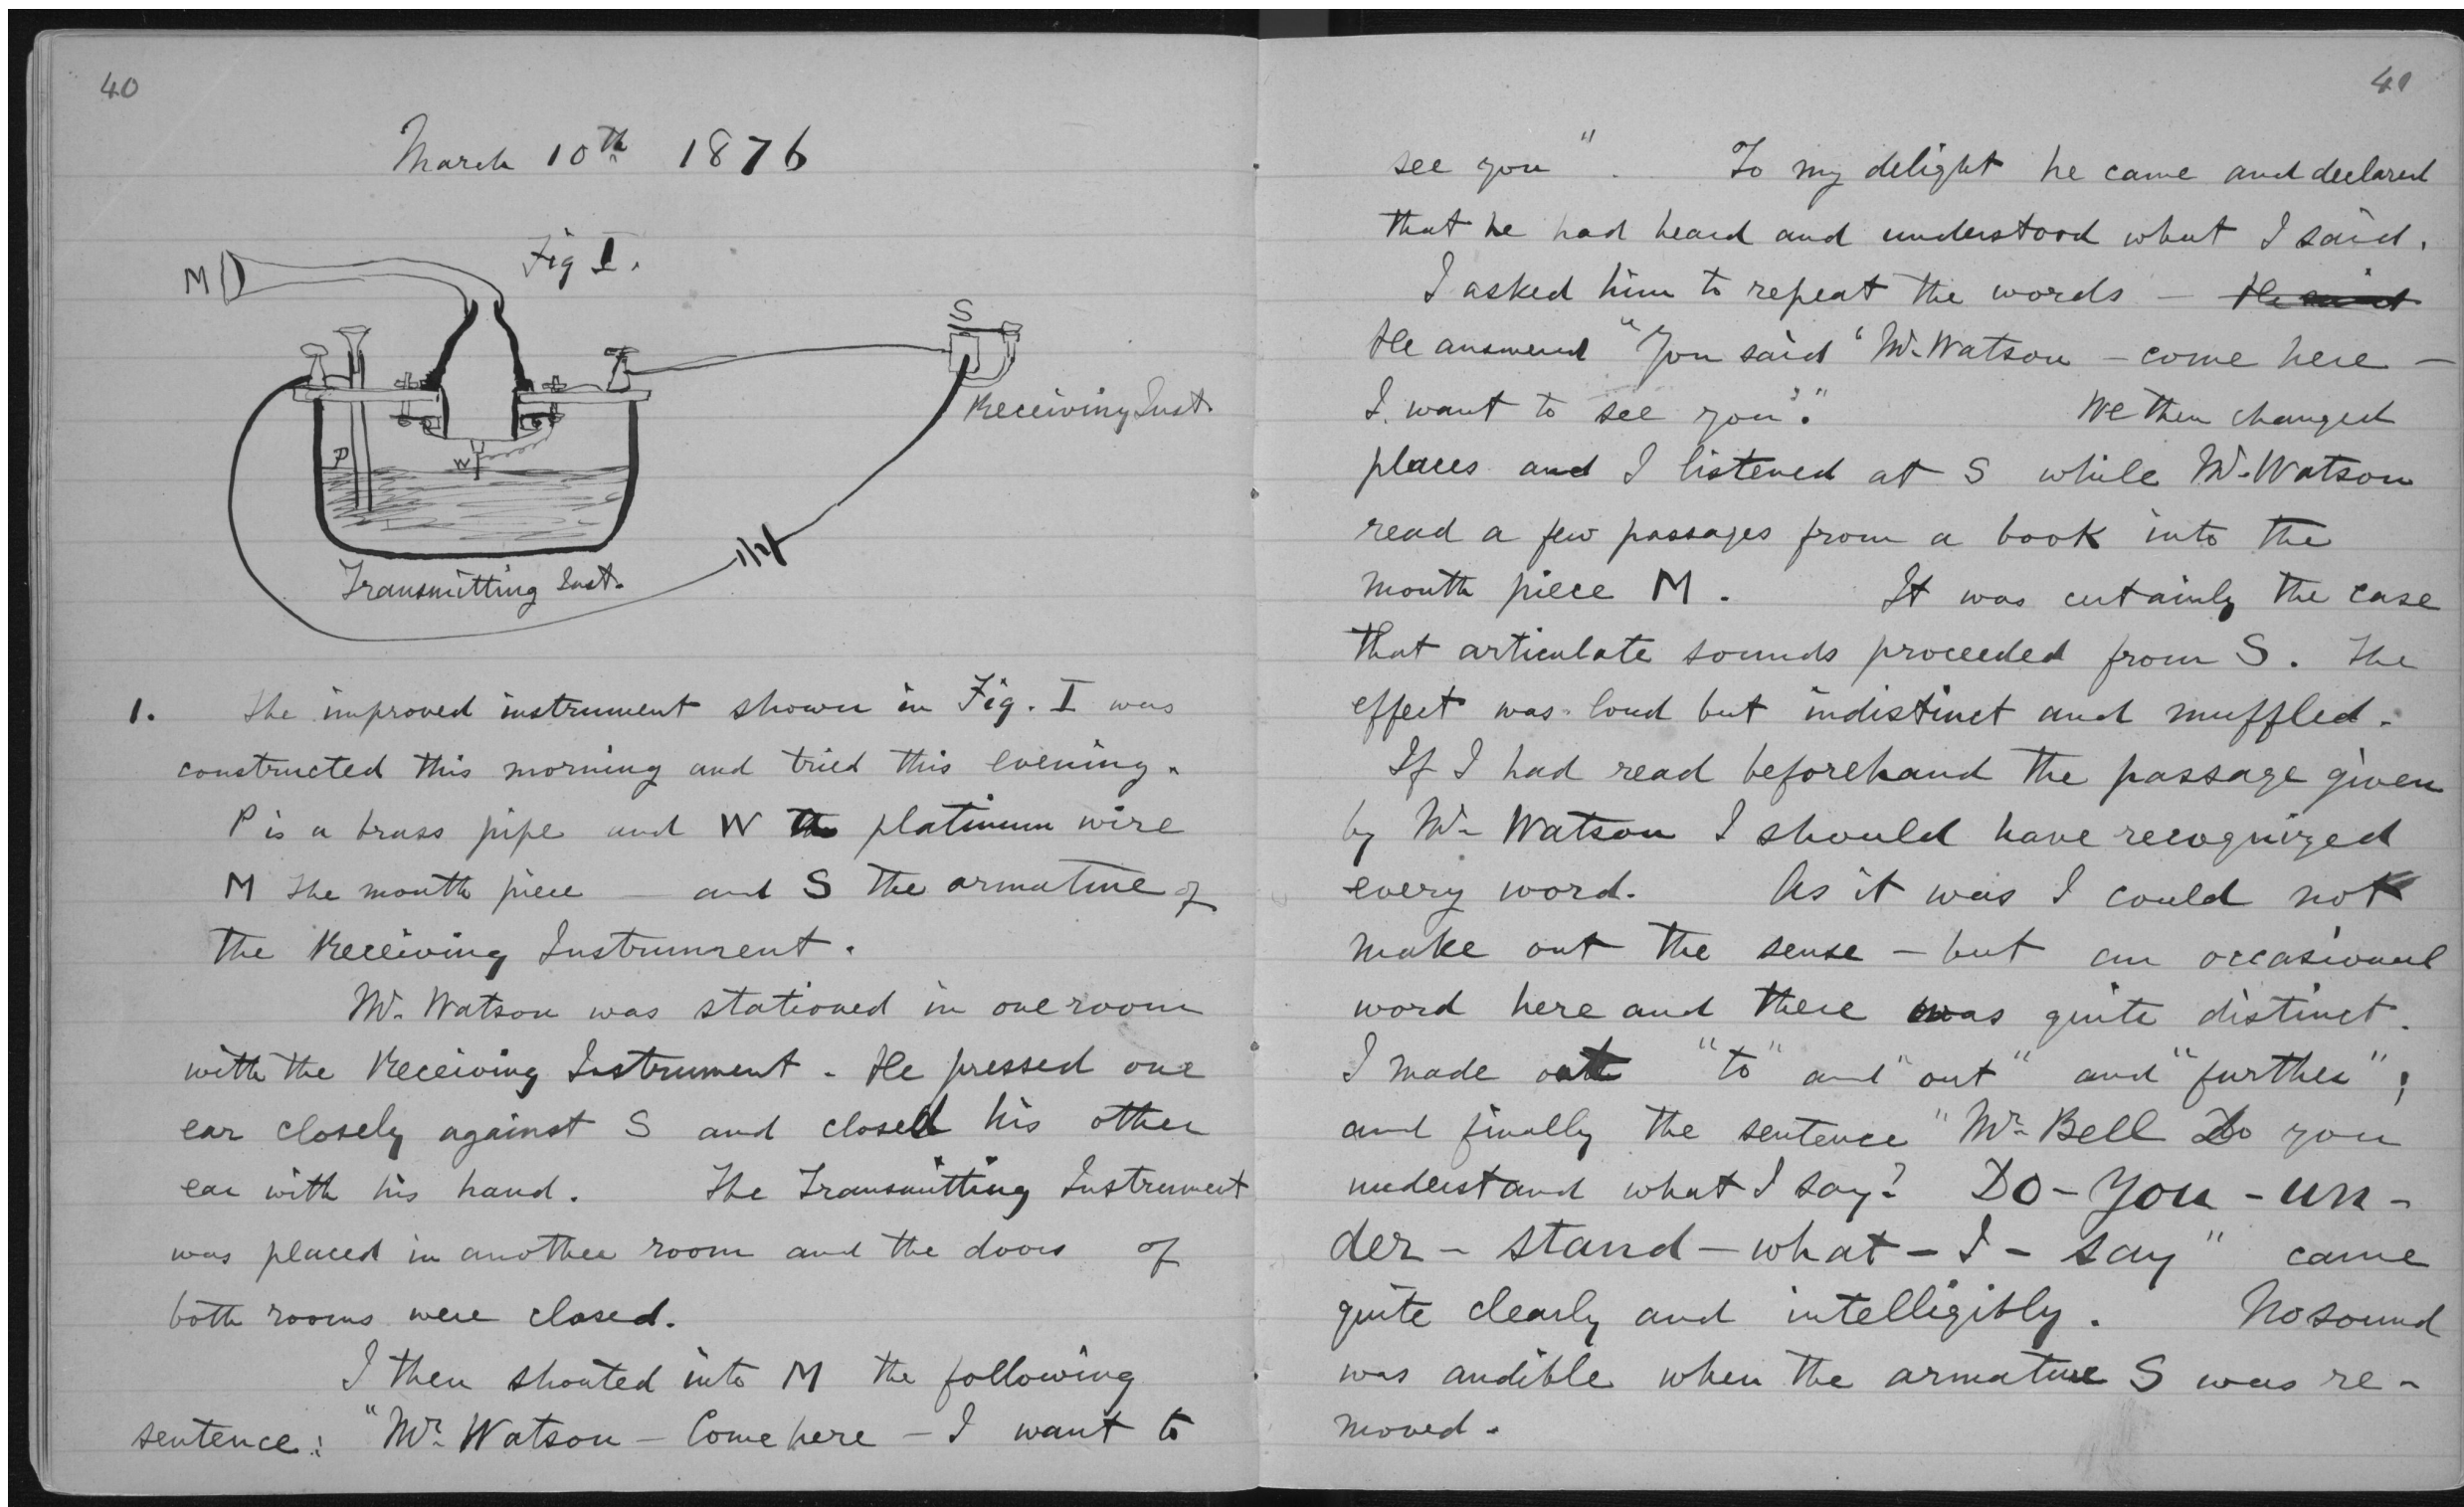 40
March 10th 1876
Fig I.
M
S
Receiving Inst.
P
W
Transmitting Inst.
1. The improved instrument shown in Fig. I was
constructed this morning and tried this evening.
P is a brass pipe and W the platinum wire
M the mouth piece — and S the armature of
the Receiving Instrument.
Mr. Watson was stationed in one room
with the Receiving Instrument. He pressed one
ear closely against S and closed his other
ear with his hand. The Transmitting Instrument
was placed in another room and the doors of
both rooms were closed.
I then shouted into M the following
sentence: "Mr. Watson — Come here — I want to
41
see you". To my delight he came and declared
that he had heard and understood what I said.
I asked him to repeat the words — He said
He answered "You said 'Mr. Watson — come here —
I want to see you'." We then changed
places and I listened at S while Mr. Watson
read a few passages from a book into the
mouth piece M. It was certainly the case
that articulate sounds proceeded from S. The
effect was loud but indistinct and muffled.
If I had read beforehand the passage given
by Mr. Watson I should have recognized
every word. As it was I could not
make out the sense — but an occasional
word here and there was quite distinct.
I made out "to" and "out" and "further";
and finally the sentence "Mr. Bell Do you
understand what I say? Do — you — un —
der — stand — what — I — say" came
quite clearly and intelligibly. No sound
was audible when the armature S was re-
moved.